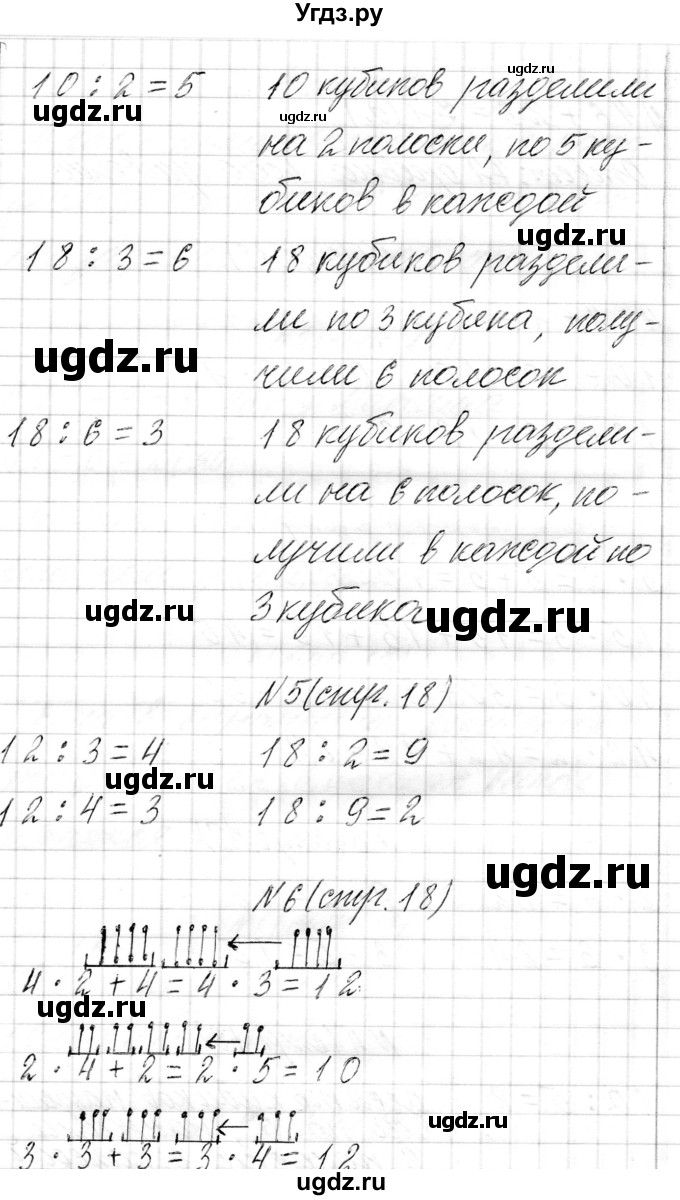 Угдз.ру
10 : 2 = 5 10 кубиков разделили
ugdz.ru
ugdz.ru
на 2 полоски, по 5 ку-
биков в каждой
ugdz.ru
18 : 3 = 6 18 кубиков раздели-
ли по 3 кубика, полу-
ugdz.ru
чили 6 полосок
18 : 6 = 3 18 кубиков раздели-
ли на 6 полосок, по-
лучили в каждой по
ugdz.ru
3 кубика
ugdz.ru
№5 (стр. 18)
12 : 3 = 4 18 : 2 = 9
ugdz.ru
12 : 4 = 3 18 : 9 = 2
ugdz.ru
№6 (стр. 18)
4 · 2 + 4 = 4 · 3 = 12
ugdz.ru
2 · 4 + 2 = 2 · 5 = 10
ugdz.ru
3 · 3 + 3 = 3 · 4 = 12
ugdz.ru